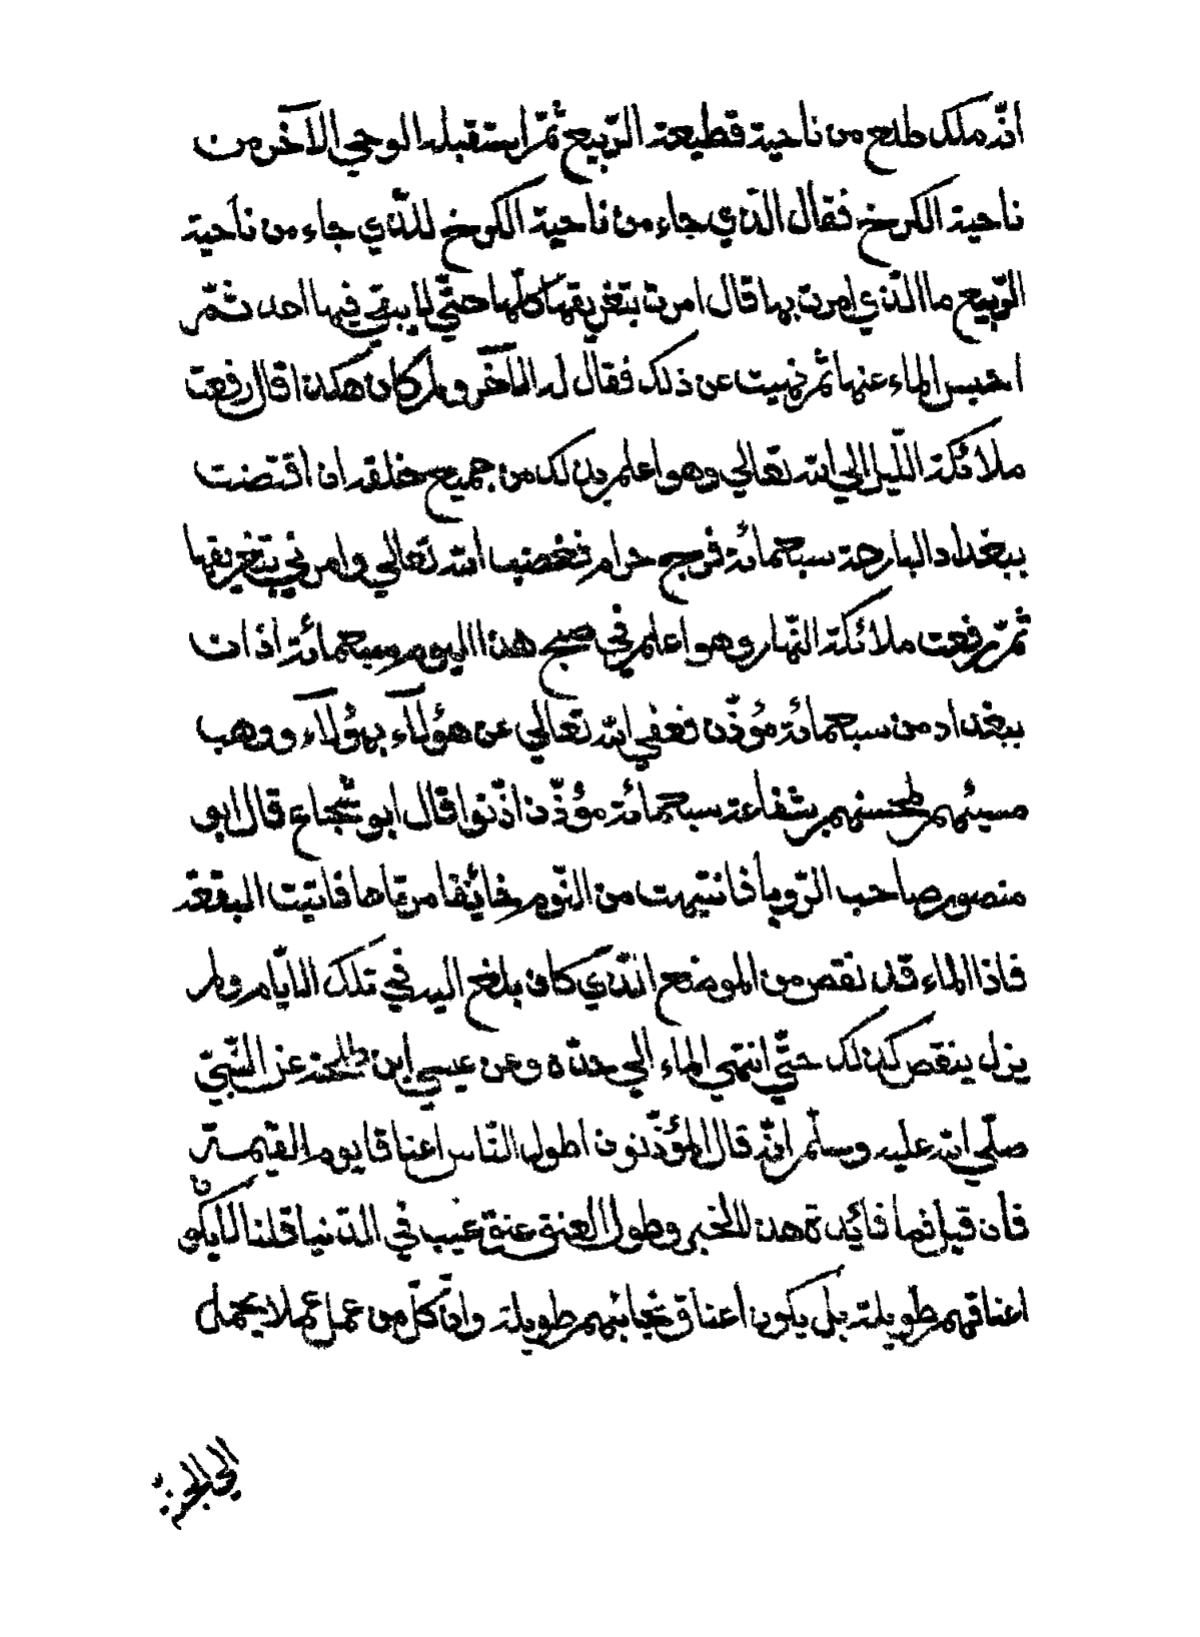 انّه ملك طلع من ناحية قطيعة الرّبيع ثمّ استقبله الوحي الآخر من
ناحية الكرخ فقال الذي جاء من ناحية الكرخ للّذي جاء من ناحية
الرّبيع ما الّذي امرت بها قال امرت بتغريقها كلّها حتّي لا يبقي فيها احد ثمّ
احبس الماء عنها ثم نهيت عن ذلك فقال له الآخر ولم كان هكذا قال رفعت
ملائكة اللّيل الي الله تعالي وهو اعلم بذلك من جميع خلقه ان اقتضت
ببغداد البارحة سبعمائة فرج حرام فغضب الله تعالي وامرني بتغريقها
ثمّ رفعت ملائكة النّهار وهو اعلم في صبح هذا اليوم سبعمائة اذات
ببغداد من سبعمائة مُؤذّن فعفي الله تعالي عن هؤلآء بهؤلآء ووهب
مسيئهم لمحسنهم بشفاعة سبعمائة مؤذّن اذّنوا قال ابو شجاع قال ابو
منصور صاحب الرّويا فانتبهت من النّوم خائفا مرتاها فاتيت البقعة
فاذا الماء قد نقص من الموضع الّذي كان بلغ اليه في تلك الايّام ولم
يزل ينقص كذلك حتّي انتهي الماء الي حدّه وعن عيسي ابن طلحة عن النّبيّ
صلّي الله عليه وسلّم انّه قال المؤذّنون اطول النّاس اعناقا يوم القيمة
فان قيل انما فائدة هذا الخبر وطول العنق عيب في الدّنيا قلنا لا يكون
اعناقهم طويلة بل يكون اعناق نجائبهم طويلة وانّ كلّ من عمل عملا يحمل
الي الجنة